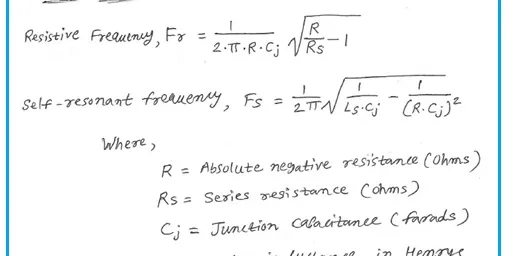 Resistive Frequency, Fr = 1/(2·π·R·Cj) √(R/Rs − 1)
Self-resonant frequency, Fs = 1/(2π) √(1/(Ls·Cj) − 1/(R·Cj)²)
Where,
R = Absolute negative resistance (Ohms)
Rs = Series resistance (ohms)
Cj = Junction capacitance (farads)
in Henrys